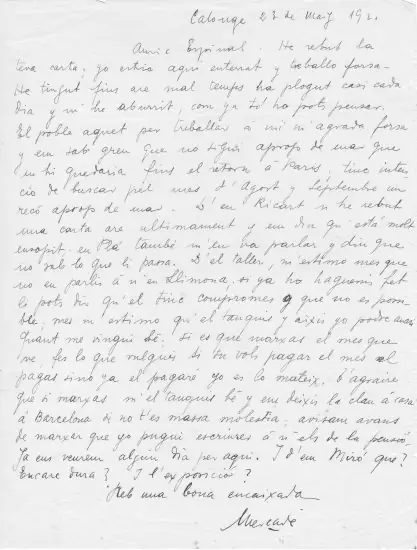 Calonge 23 de Maig 192.
Amic Espinal. He rebut la
teva carta; yo estic aqui enterrat y treballo forsa.
He tingut fins are mal temps ha plogut casi cada
dia y m'he aburrit, com ya tó ho pots pensar.
El poble aquet per treballar á mi m'agrada forsa
y em sab greu que no sigui aprop de mar que
m hi quedaria fins el retorn á Paris, tinc inten-
ció de buscar pel mes d'Agost y Septembre un
recó aprop de mar. D'en Ricart n he rebut
una carta are ultimament y em diu qu'está molt
ensopit. en Plá també m'en va parlar y diu que
no sab lo que li passa. D'el taller, m'estimo mes que
no en parlis á n'en Llimona, si ya ho haguessis fet
li pots dir qu'el tinc compromés y que no es possi-
ble, mes m'estimo qu'el tanquis y aixis yo podré anar
quant me vingui bé. Si es que marxas el mes que
ve fes lo que vulguis si tu vols pagar el mes el
pagas sino ya el pagaré yo es lo mateix, t'agrairé
que si marxas m'el tanquis bé y em deixis la clau á casa
á Barcelona si no t'es massa molestia; avisam avans
de marxar que yo pugui escriure á n'els de la pensió.
Ja ens veurem algun dia per aqui. I d'em Miró que?
Encare dura? I l'exposició?
Reb una bona encaixada
Mercadé